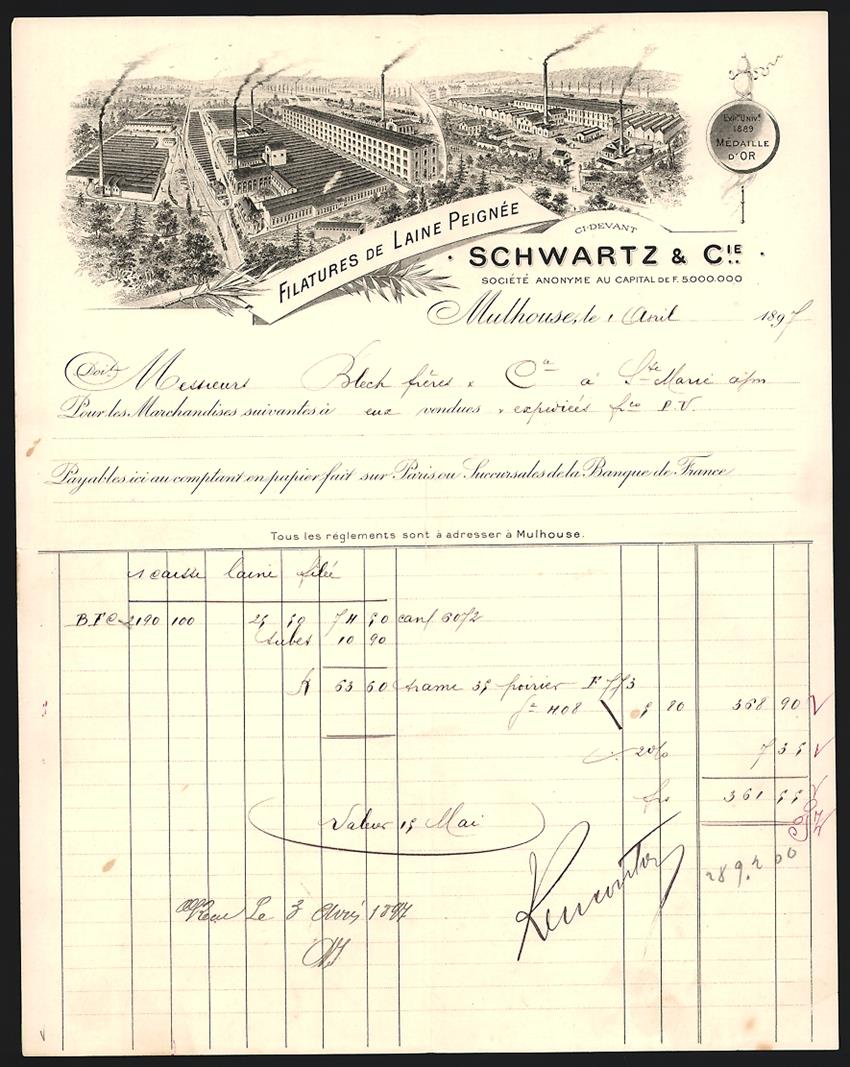 Expon Univlle
1889
MÉDAILLE
D'OR
FILATURES DE LAINE PEIGNÉE
CI-DEVANT
· SCHWARTZ & CIE ·
SOCIÉTÉ ANONYME AU CAPITAL DE F. 5.000.000
Mulhouse, le 1 Avril 1897
Doit Messieurs Blech frères & Ce à Ste Marie a/m
Pour les Marchandises suivantes à eux vendues & expediées fco P.V.
Payables ici au comptant en papier fait sur Paris ou Succursales de la Banque de France
Tous les réglements sont à adresser à Mulhouse.
1 caisse laine filée
B.F.C. 2190 100 25 50 74 50
tubes 10 90
K 63 60 trame 35 F 773
5 80 368 90
2% 7 35
frs 361 55
Valeur 15 Mai
289.200
Recu Le 3 Avril 1897